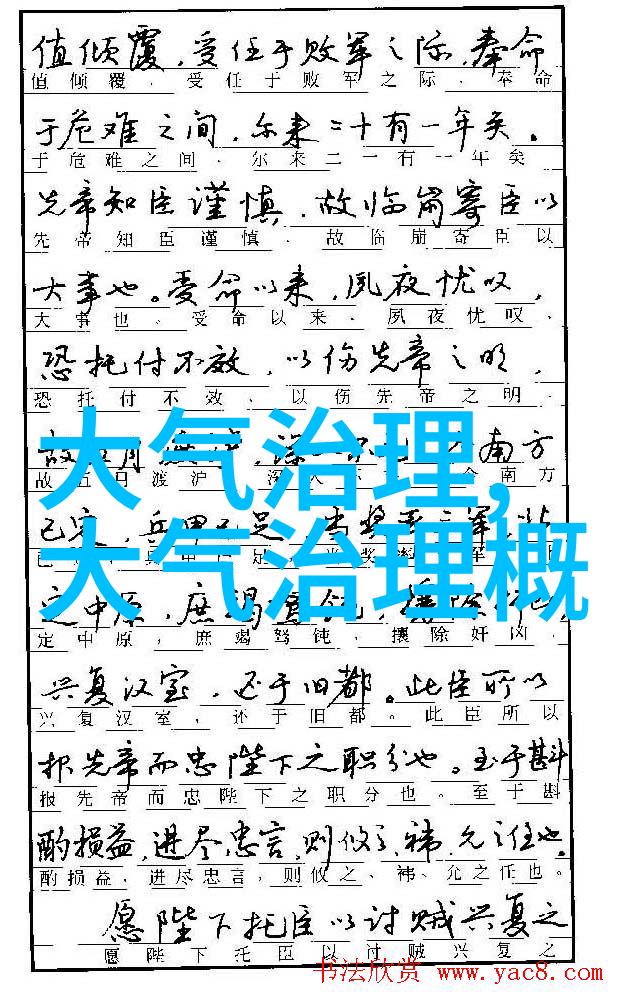 值倾覆,受任于败军之际,奉命
值倾覆,受任于败军之际,奉命
于危难之间,尔来二十有一年矣。
于危难之间,尔来二一有一年矣
先帝知臣谨慎,故临崩寄臣以
先帝知臣谨慎,故临崩寄臣以
大事也。受命以来,夙夜忧叹,
大事也。受命以来,夙夜忧叹,
恐托付不效,以伤先帝之明,
恐托付不效,以伤先帝之明,
大气治理,
故五月渡泸,深入不 南方
故五月渡泸,深入不 今南方
已定,兵甲已足,当奖 三军,
大气治理概
定中原,庶竭驽钝,攘除奸凶,
定中原,庶竭驽钝,攘除奸凶,
兴复汉室,还于旧都。此臣所以
兴复汉室,还于旧都。此臣所以
报先帝而忠陛下之职分也。至于斟
报先帝而忠陛下之职分也。至于斟
酌损益,进尽忠言,则攸之、祎、允之任也。
酌损益,进尽忠言,则攸之、祎、允之任也。
愿陛下托臣以讨贼兴复之
愿陛下托臣以讨贼兴复之
书法欣赏 www.yac8.com